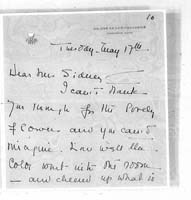 10
Tuesday, May 17th.
Dear Mr. Sidney
I can't thank
you enough for the lovely
flowers and you can't
imagine how well the
color went with the room
— and cheered up what is